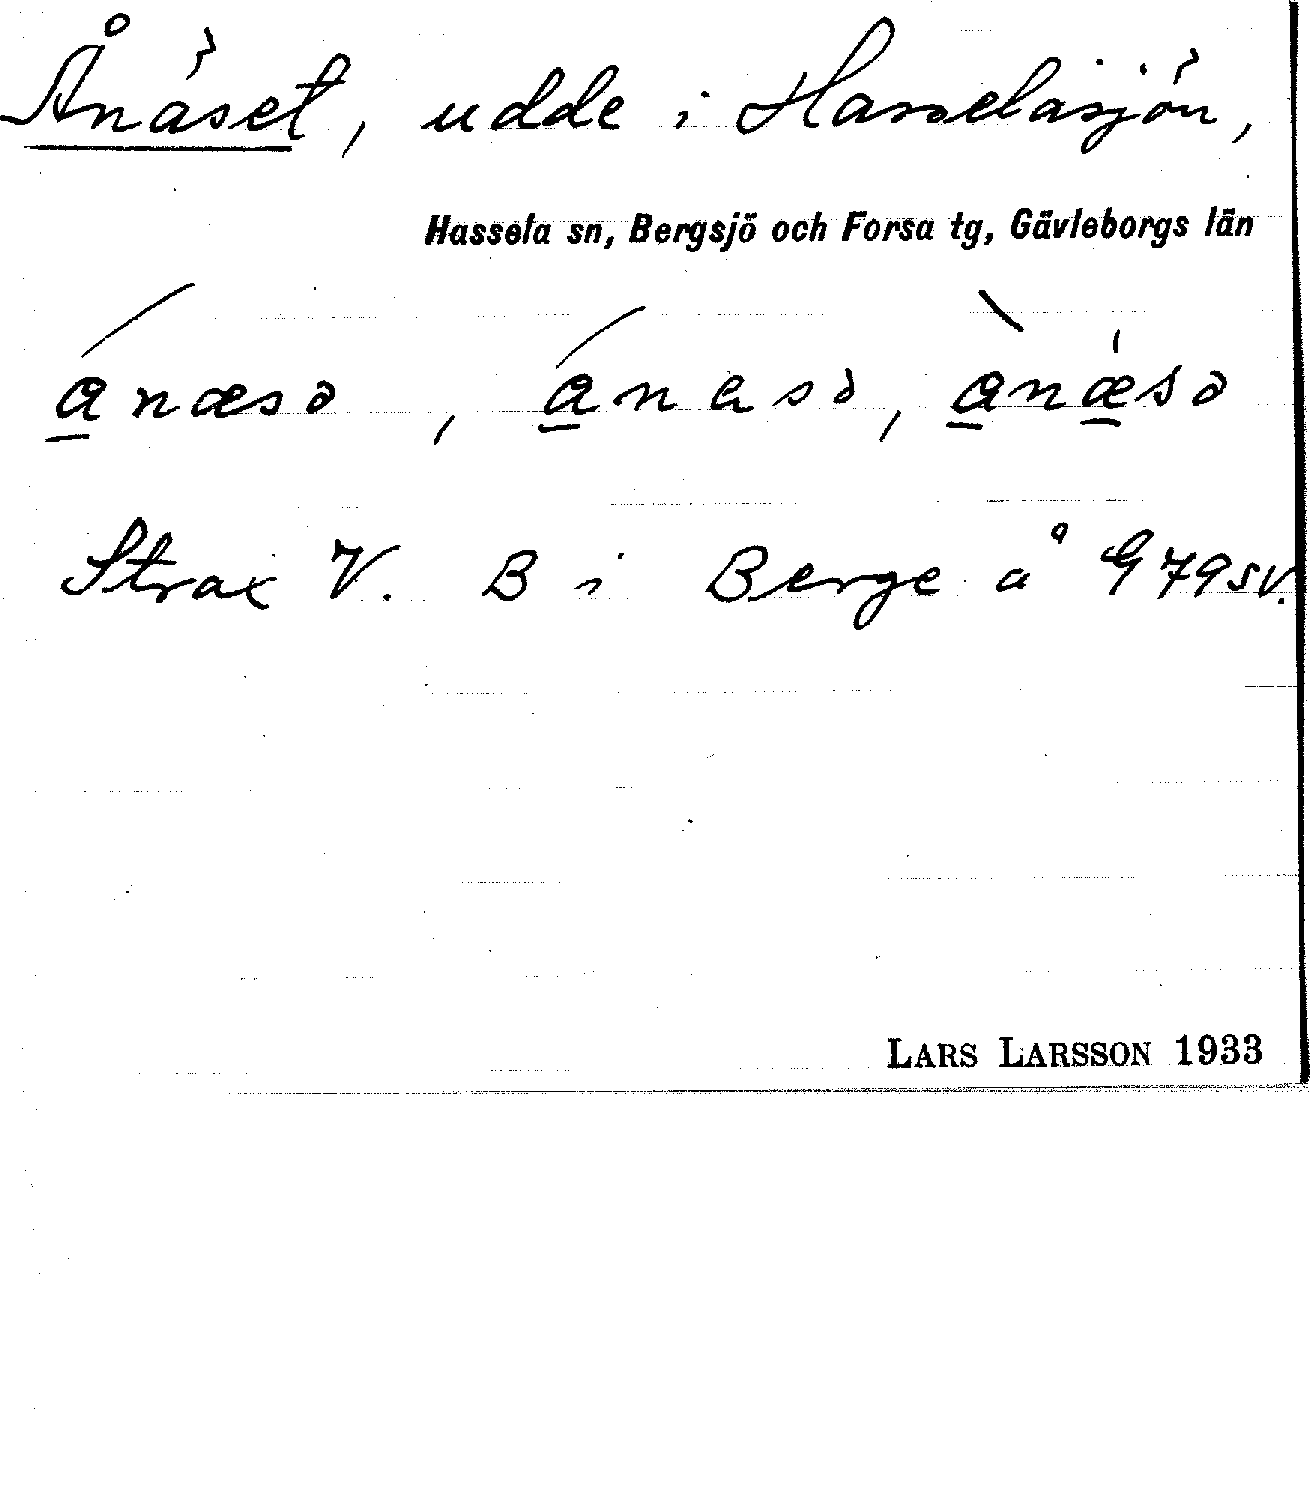 Ånäset, udde i Hasselasjön,
Hassela sn, Bergsjö och Forsa tg, Gävleborgs län
ánæsə, ánasə, ànæ̀sə
Strax V. B i Berge å G 79 SV.
LARS LARSSON 1933